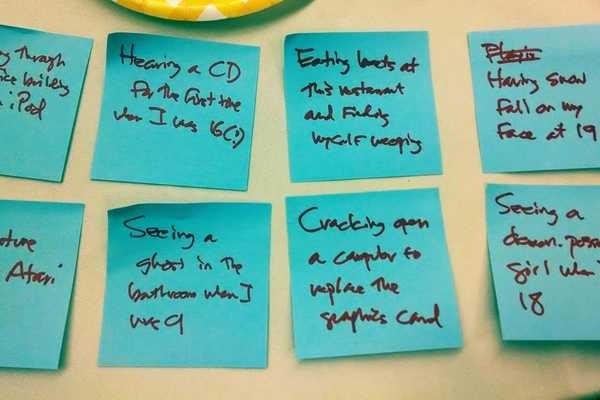 ng through
ice building
iPod
Hearing a CD
for the first time
when I was 16(!)
Eating beets at
this restaurant
and finding
myself weeping
Having snow
fall on my
face at 19
ture
Atari
Seeing a
ghost in the
bathroom when I
was 9
Cracking open
a computer to
replace the
graphics card
Seeing a
demon-poss
girl when
18